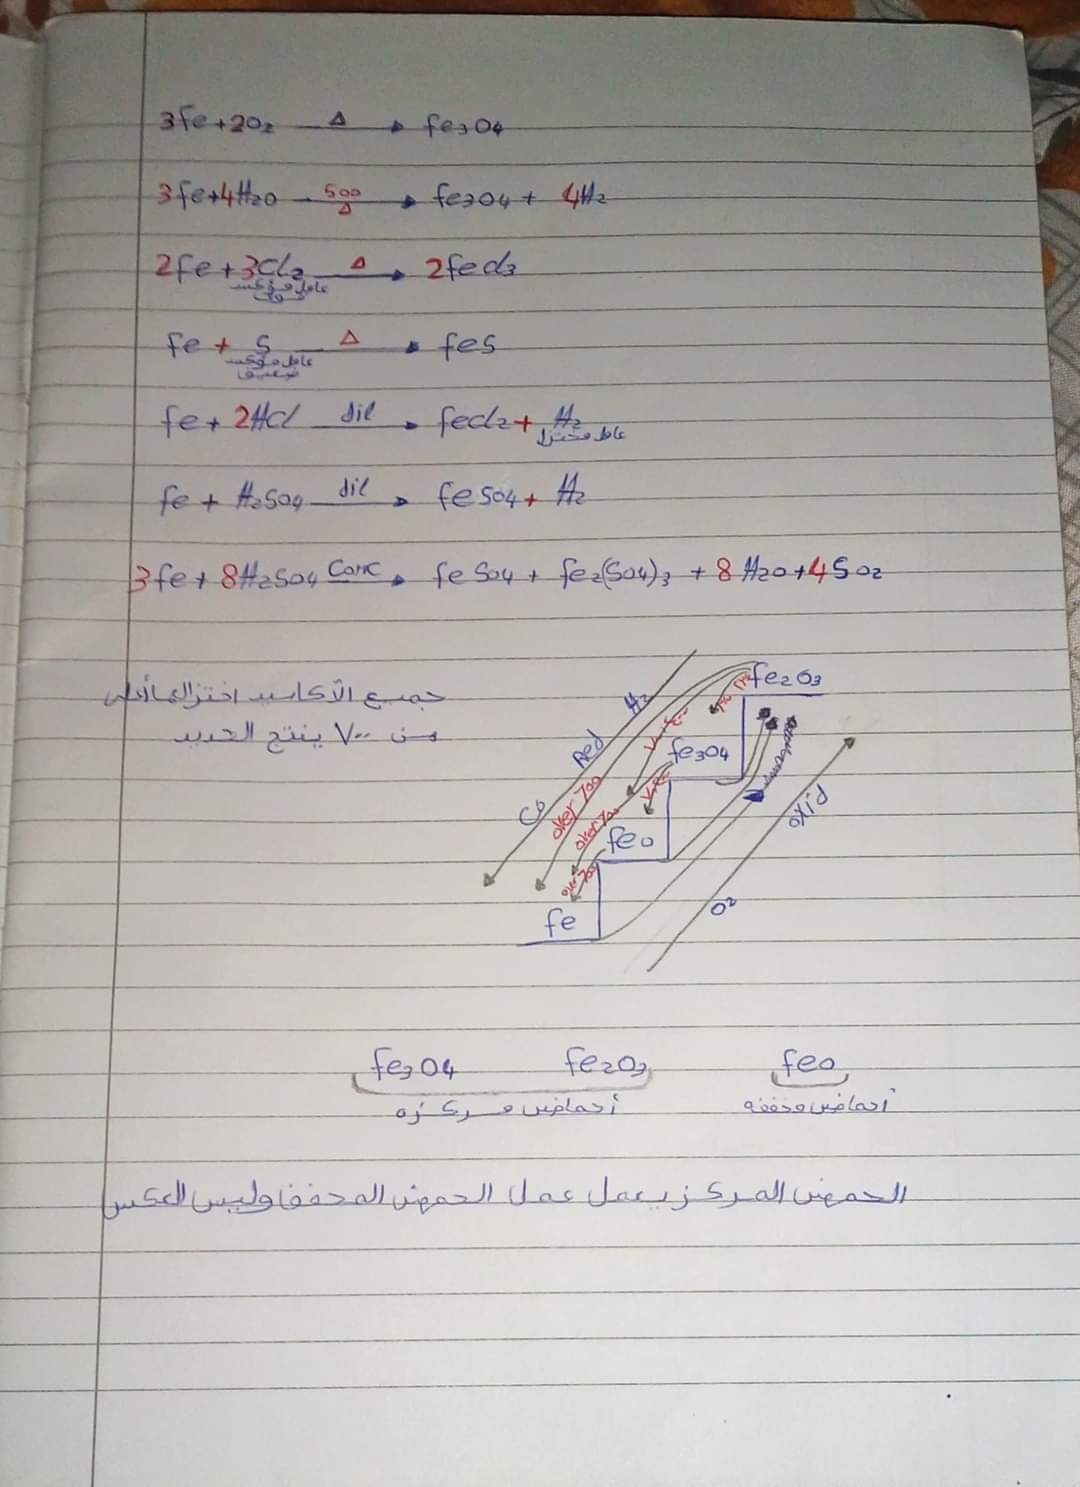 3fe + 2O₂ —Δ→ fe₃O₄
3fe + 4H₂O —500 Δ→ fe₃O₄ + 4H₂
2fe + 3Cl₂ —Δ→ 2fecl₃
عامل مؤكسد
قوى
fe + S —Δ→ feS
عامل مؤكسد
ضعيف
fe + 2HCl —dil→ fecl₂ + H₂
عامل مختزل
fe + H₂SO₄ —dil→ feSO₄ + H₂
3fe + 8H₂SO₄ —Conc→ feSO₄ + fe₂(SO₄)₃ + 8H₂O + 4SO₂
جميع الأكاسيد اختزالها أعلى
من ٧٠٠ ينتج الحديد
fe₂O₃
H₂
Red
fe₃O₄
CO
over 700
over 700
feO
oxid
over 700
fe
O₂
fe₃O₄ fe₂O₃ feO
أحماض مركزه أحماض مخففه
الحمض المركز يعمل عمل الحمض المخفف وليس العكس